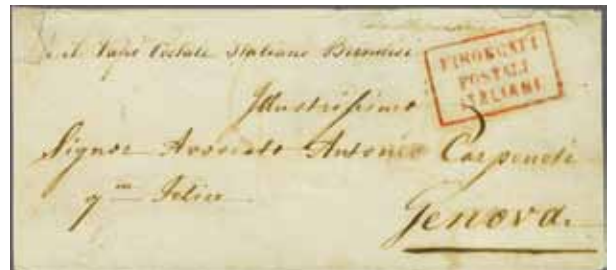 il Vap.e Postale Italiano
PIROSCAFI
POSTALI
ITALIANI
Illustrissimo
Signor Avvocato Antonio
q.m Felice
Genova.